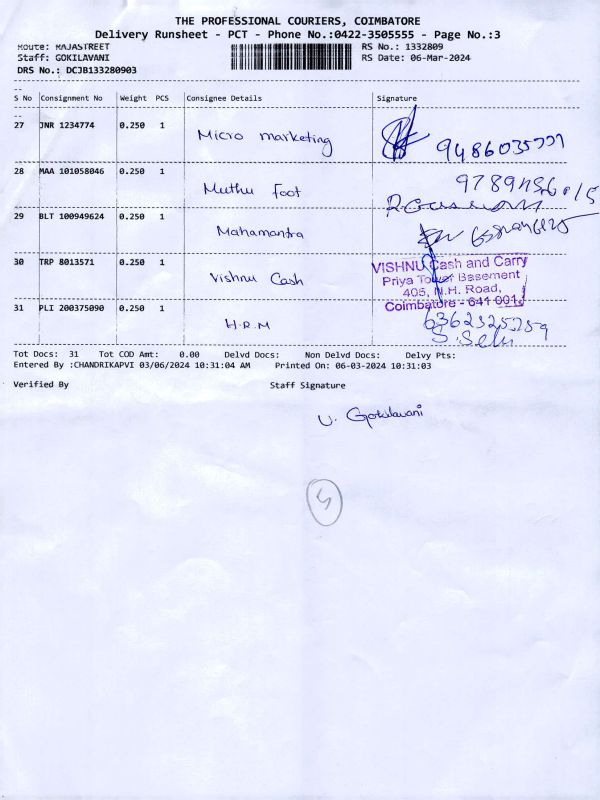 THE PROFESSIONAL COURIERS, COIMBATORE
Delivery Runsheet - PCT - Phone No.:0422-3505555 - Page No.:3
Route: RAJASTREET
RS No.: 1332809
Staff: GOKILAVANI
RS Date: 06-Mar-2024
DRS No.: DCJB133280903
S No Consignment No Weight PCS Consignee Details Signature
27 JNR 1234774 0.250 1 Micro marketing 9486035771
28 MAA 101058046 0.250 1 Muthu Foot
29 BLT 100949624 0.250 1 Mahamantra
30 TRP 8013571 0.250 1 Vishnu Cash
VISHNU Cash and Carry
Priya Tower Basement
405, N.H. Road,
Coimbatore - 641 001
31 PLI 200375090 0.250 1 H.R.M 6362325259
S. Selvi
Tot Docs: 31 Tot COD Amt: 0.00 Delvd Docs: Non Delvd Docs: Delvy Pts:
Entered By :CHANDRIKAPVI 03/06/2024 10:31:04 AM Printed On: 06-03-2024 10:31:03
Verified By Staff Signature
V. Gokilavani
5